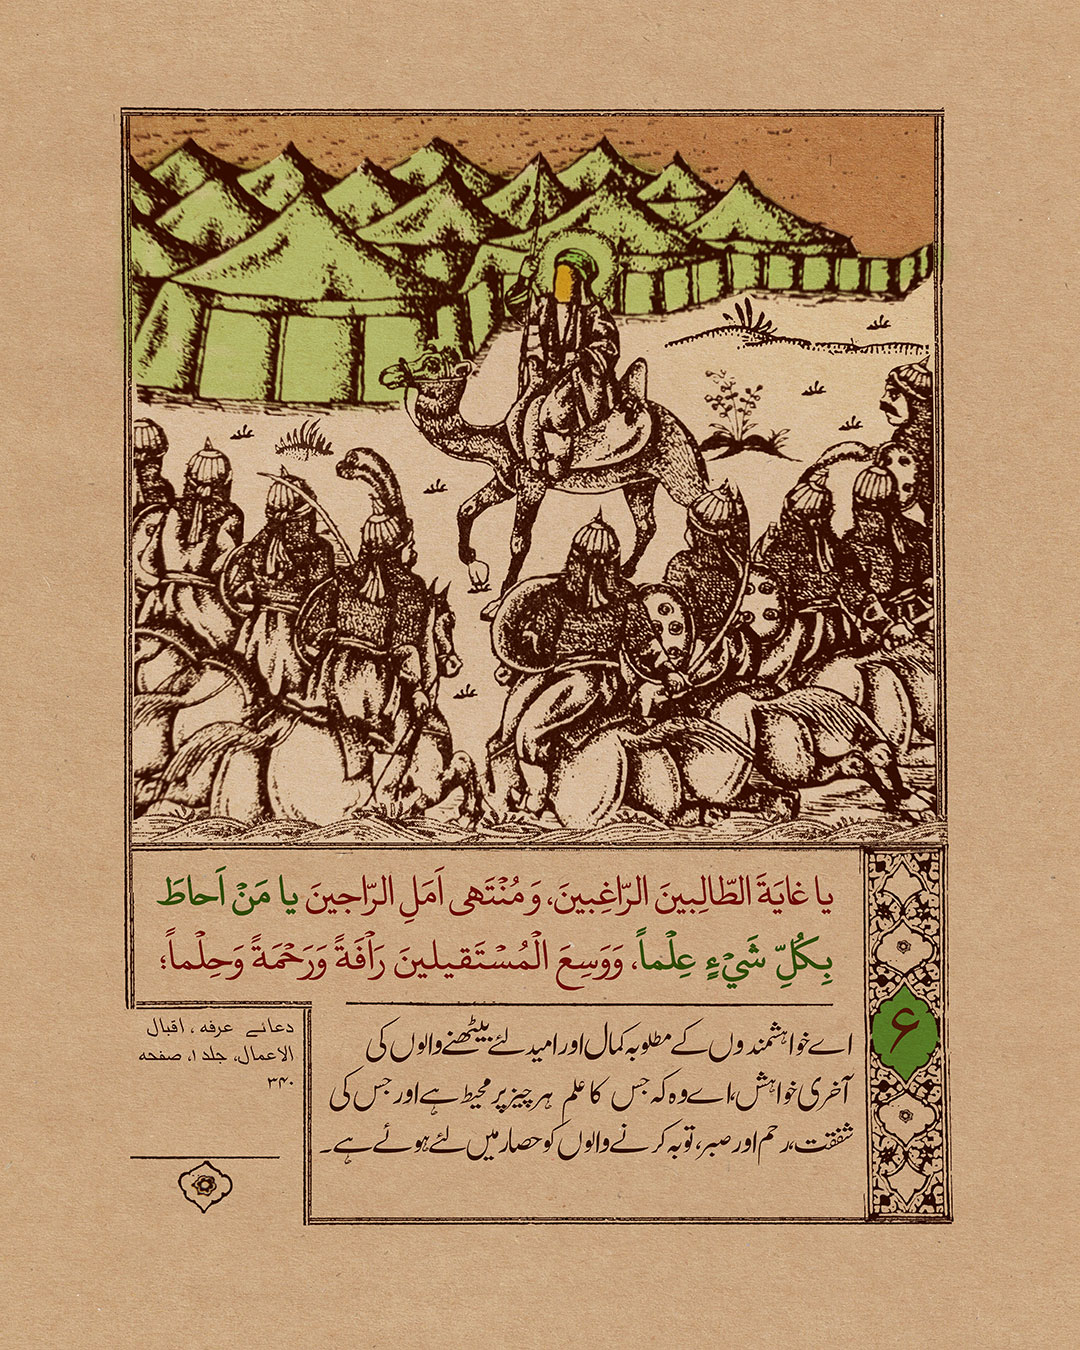 يا غايَةَ الطّالِبينَ الرّاغِبينَ، وَ مُنْتَهى اَمَلِ الرّاجينَ يا مَنْ اَحاطَ
بِكُلِّ شَيْءٍ عِلْماً، وَوَسِعَ الْمُسْتَقيلينَ رَاْفَةً وَرَحْمَةً وَحِلْماً؛
۶
اے خواہشمندوں کے مطلوبہ کمال اور امید لئے بیٹھنے والوں کی
آخری خواہش،اے وہ کہ جس کا علم ہر چیز پر محیط ہے اور جس کی
شفقت،رحم اور صبر،توبہ کرنے والوں کو حصار میں لئے ہوئے ہے۔
دعائے عرفہ ، اقبال
الاعمال، جلد ۱، صفحه
۳۴۰